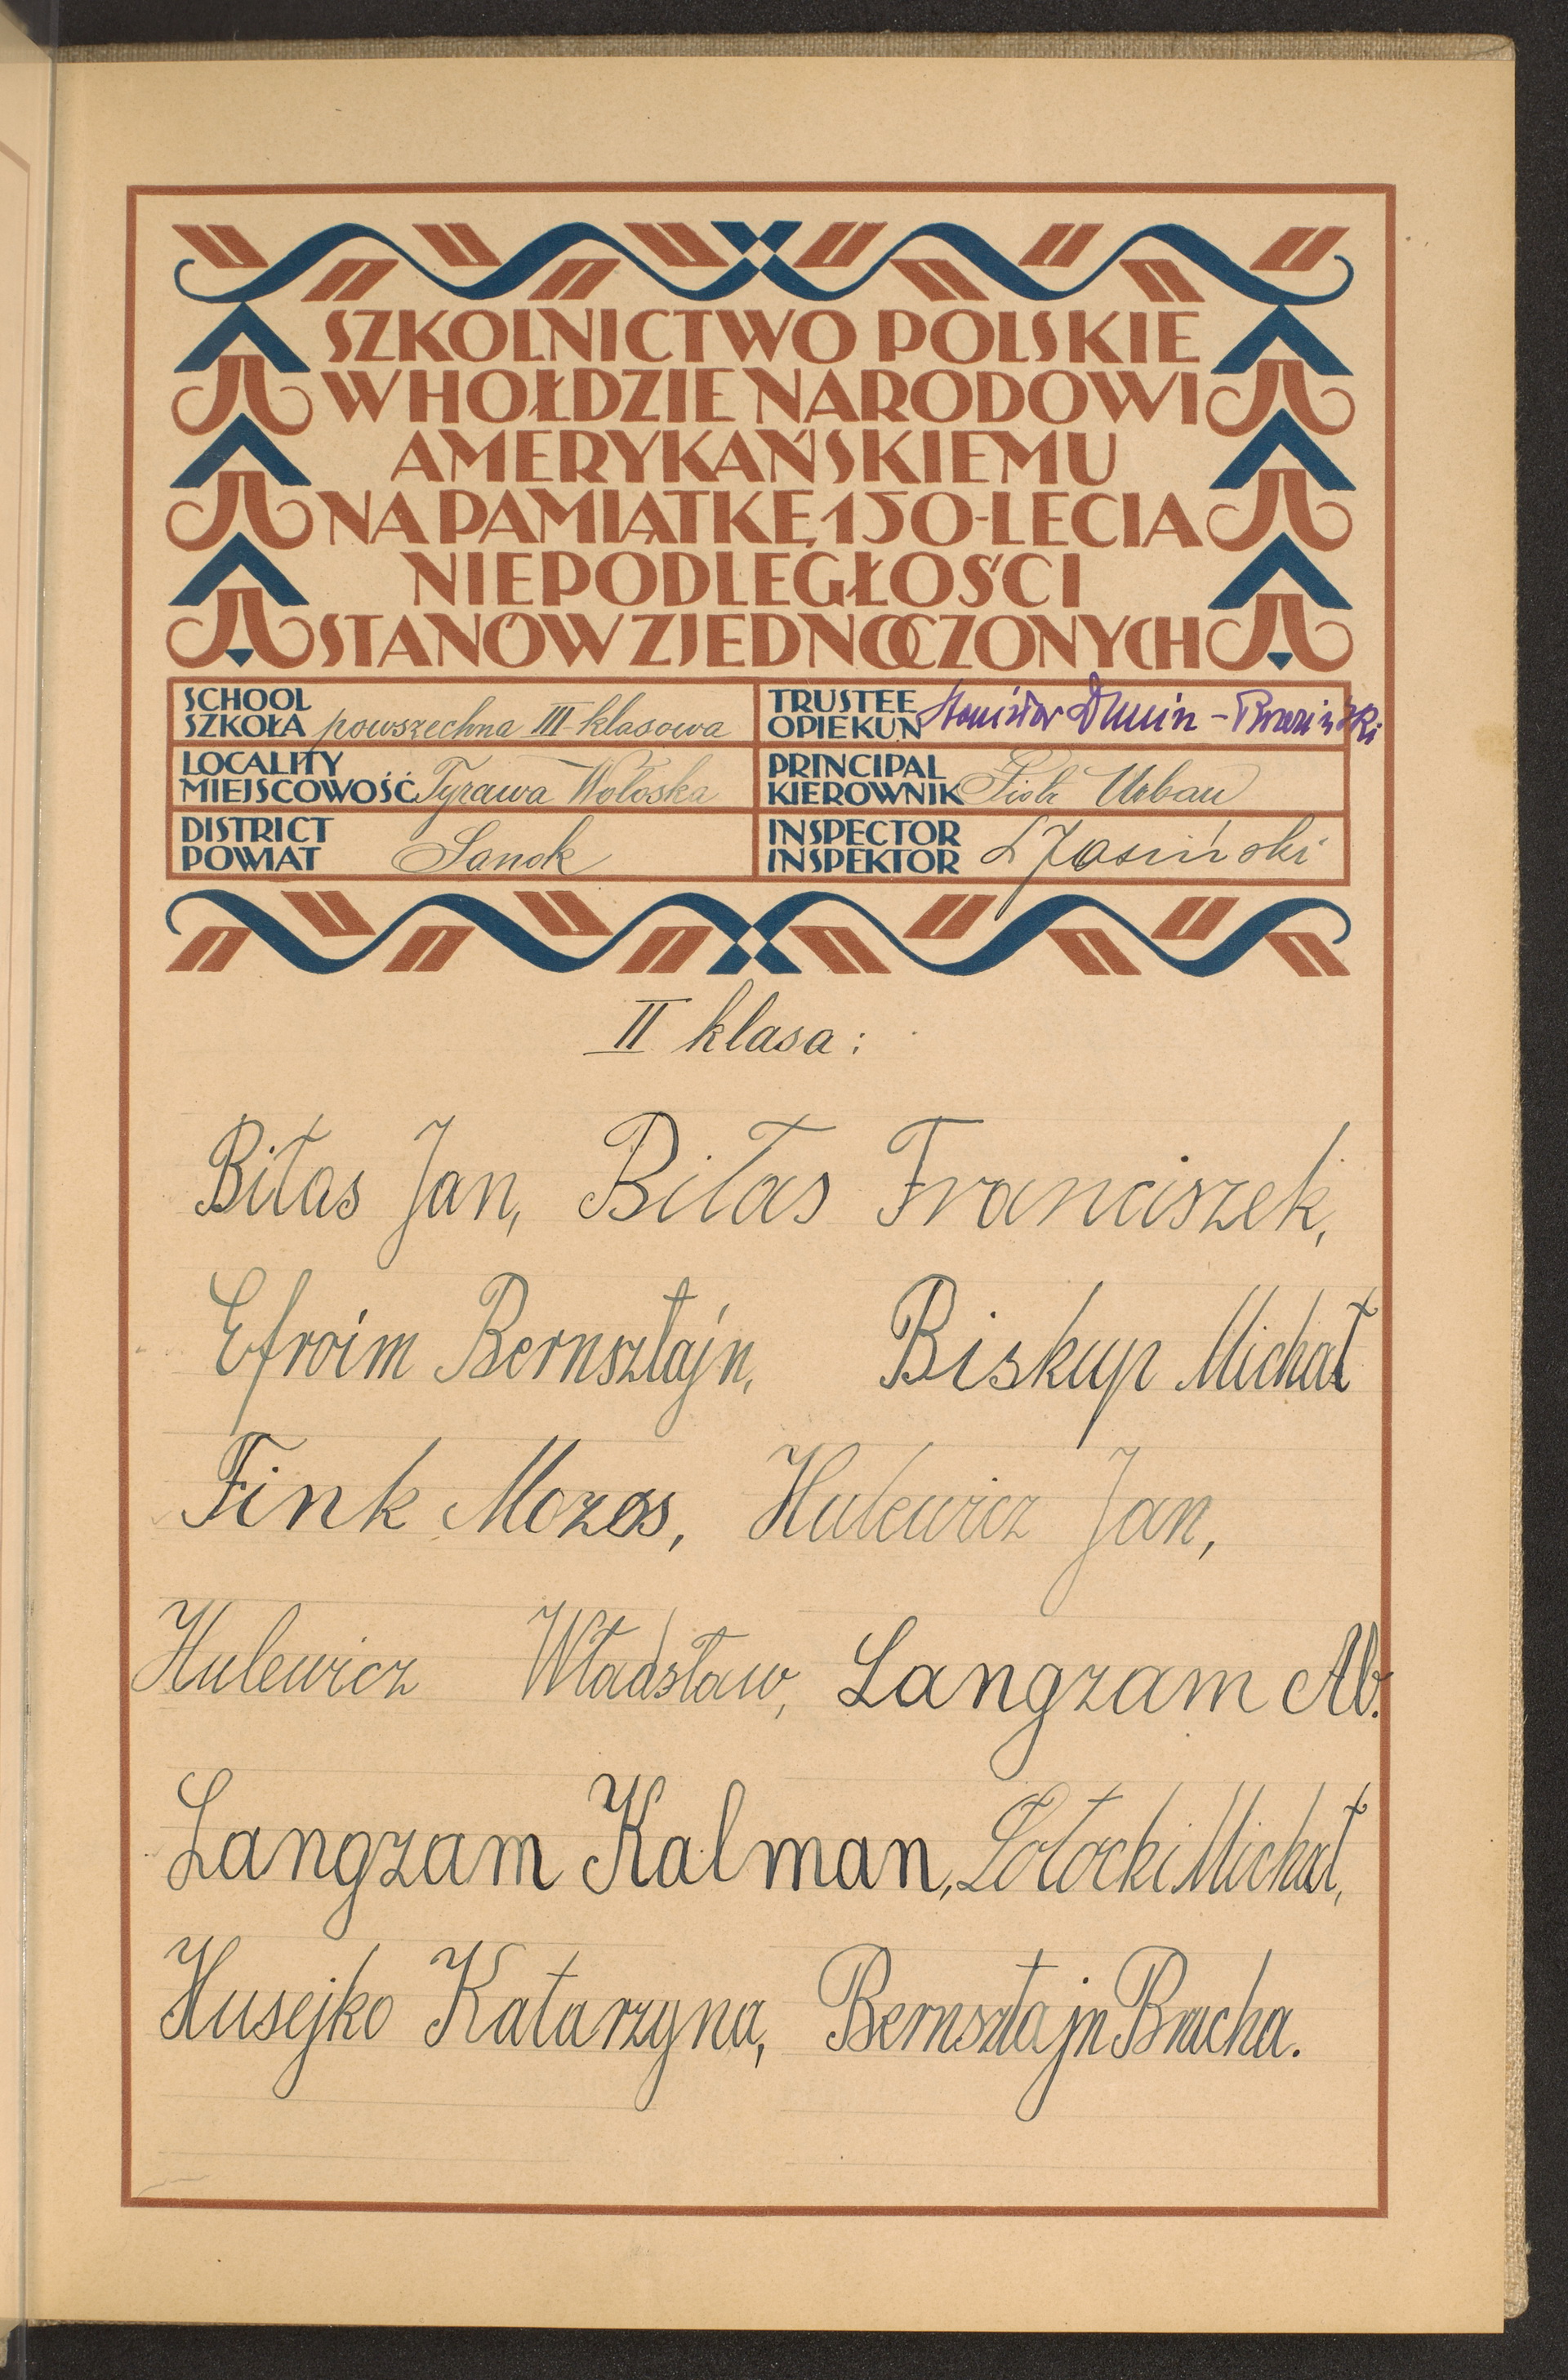 SZKOLNICTWO POLSKIE
W HOŁDZIE NARODOWI
AMERYKAŃSKIEMU
NA PAMIĄTKĘ 150-LECIA
NIEPODLEGŁOŚCI
STANÓW ZJEDNOCZONYCH
SCHOOL
SZKOŁA powszechna III-klasowa
TRUSTEE
OPIEKUN Stanisław Dunin-Brzeziński
LOCALITY
MIEJSCOWOŚĆ Tyrawa Wołoska
PRINCIPAL
KIEROWNIK Piotr Urban
DISTRICT
POWIAT Sanok
INSPECTOR
INSPEKTOR L Jasiński
II klasa:
Biłas Jan, Biłas Franciszek,
Efroim Bernsztajn, Biskup Michał
Fink Mozes, Hulewicz Jan,
Hulewicz Władsław, Langzam Ab.
Langzam Kalman, Łołocki Michał,
Husejko Katarzyna, Bernsztajn Bracha.